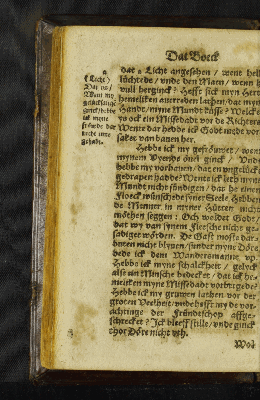 Dat Boeck
dat e Licht angesehen / wenn hell
lüchtede / vnde den Maen / wenn h
vull berginck? Hefft sick myn Herte
hemeliken auerreden lathen / dat myn
Hande / myne Mundt küsse? Welck
ys ock ein Missedadt vor de Richters
Wente dar hedde ick Godt mede vor
saket van bauen her.
Hebbe ick my gefröuwet / wenn
mynem Vyende öuel ginck / Vnde
hebbe my vorhauen / dat en vnglück
bedrapen hadde? Wente ick leth mynen
Mundt nicht sündigen / dat he einen
Floeck wünschede syner Seele. Hebben
de Menner in myner Hütten nicht
möthen seggen: Och wolde Godt /
dat wy van synem Fleesche nicht ge-
sadiget wörden. De Gast moste dar
buten nicht blyuen / sunder myne Döre
dede ick dem Wandersmanne vp.
Hebbe ick myne schalckheit / gelyck
alse ein Minsche bedecket / dat ick he-
meliken myne Missedadt vorborgede?
Hebbe ick my gruwen lathen vor der
groten Veelheit / vnde hefft my de vor-
achtinge der Fründeschop affge-
schrecket? Ick bleeff stille / vnde ginck
thor Döre nicht vth.
e
(Licht)
Dat ys /